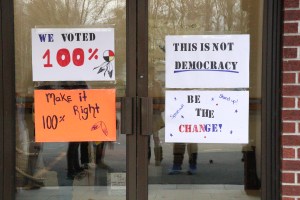 WE VOTED
100%
THIS IS NOT
DEMOCRACY
Make it
Right
100%
BE
THE
CHANGE!